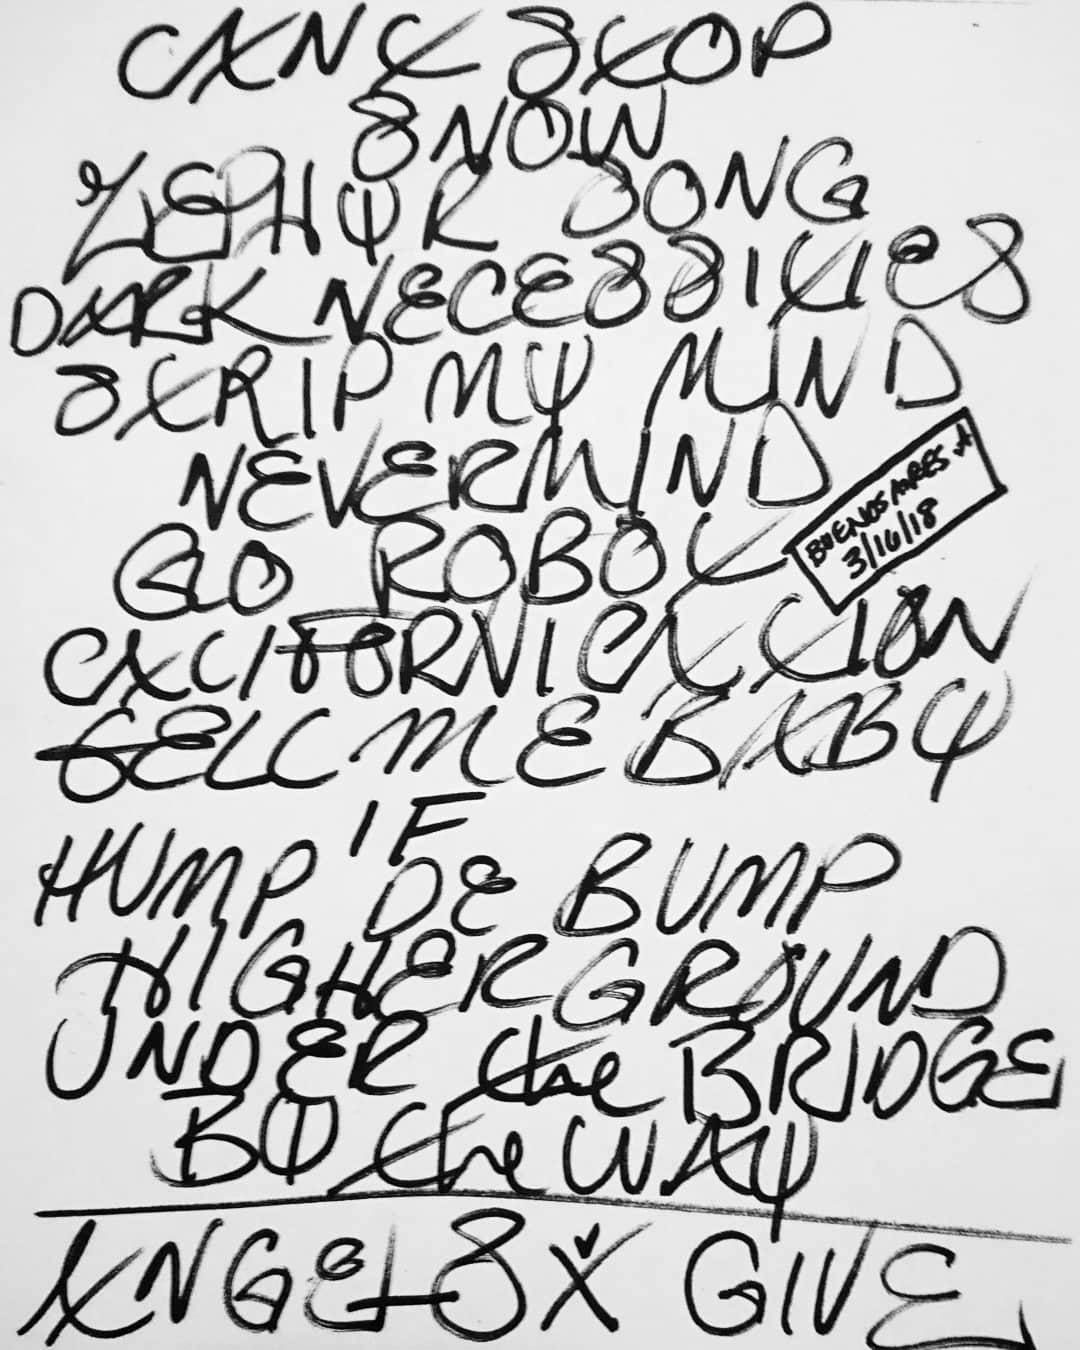 CAN'T STOP
SNOW
ZEPHYR SONG
DARK NECESSITIES
STRIP MY MIND
NEVERMIND
BUENOS AIRES. A
3/16/18
GO ROBOT
CALIFORNICATION
TELL ME BABY
IF
HUMP DE BUMP
HIGHER GROUND
UNDER the BRIDGE
BY the WAY
ANGELS X GIVE